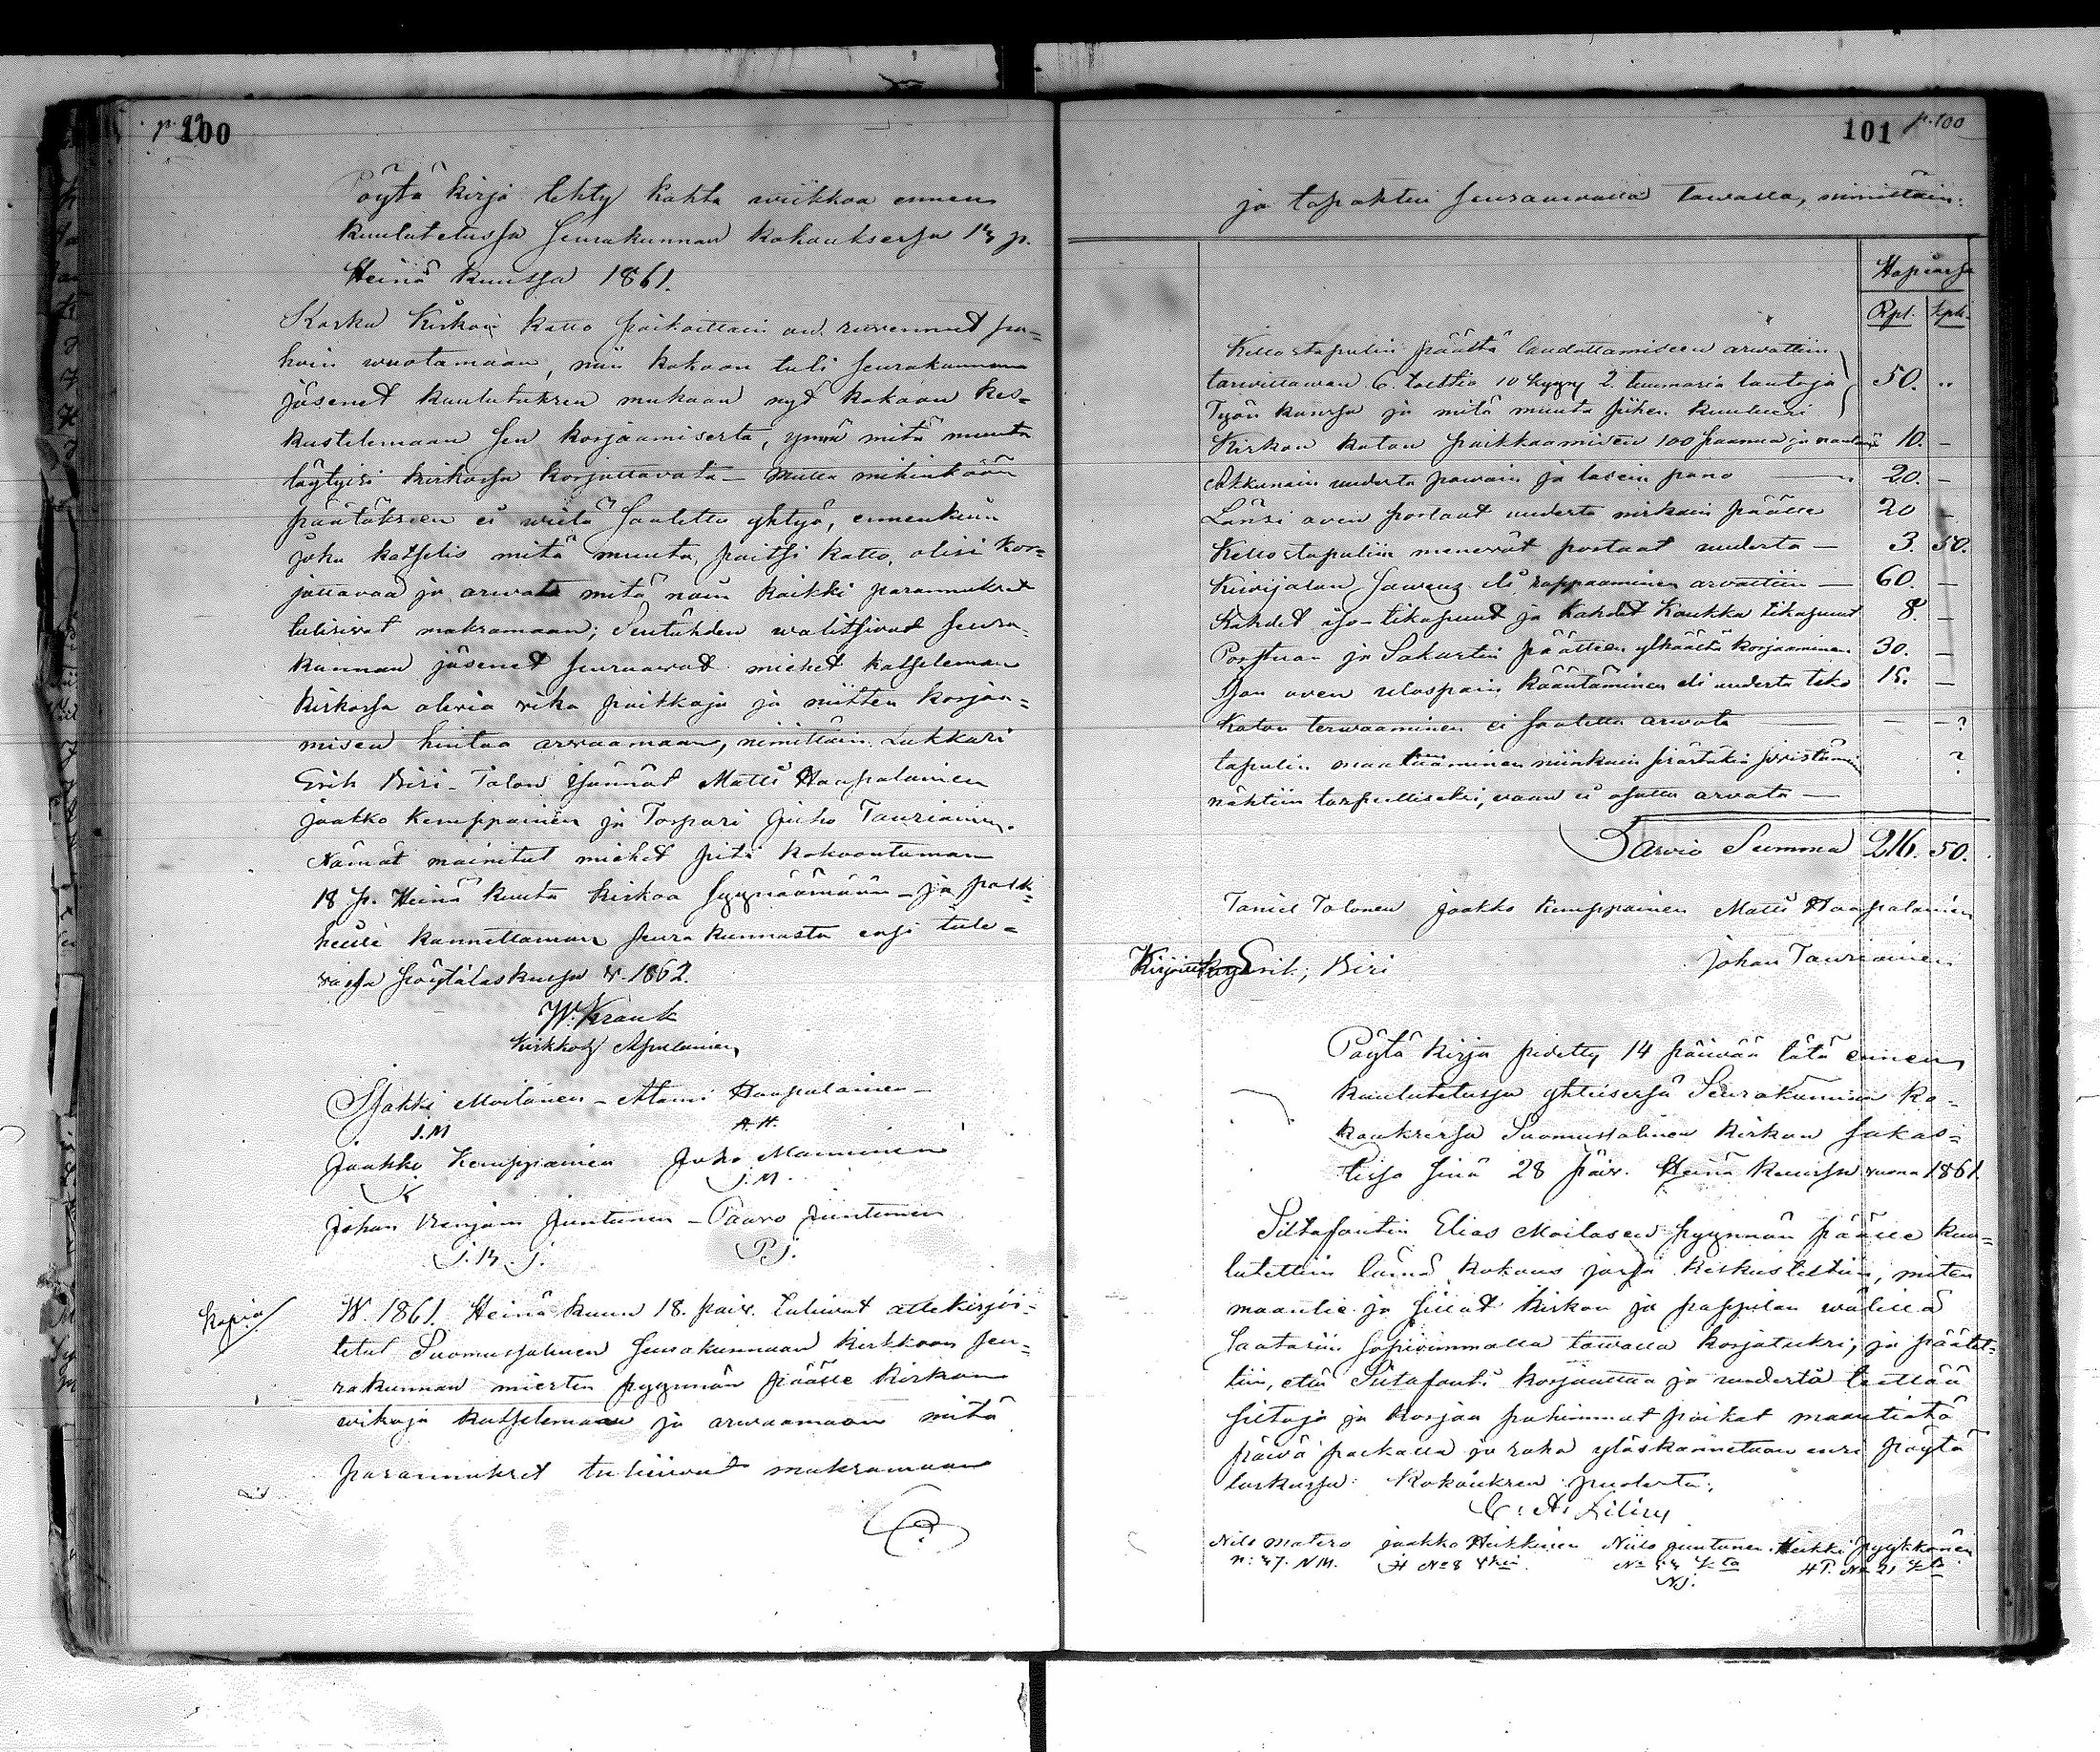 p. 99
100
Pöytä kirja tehty kahta wiikkoa ennen
kuulutetussa seurakunnan kokouksessa 14 p.
Heinä kuussa 1861.
Koska Kirkon katto paikoittain on ruvennut pa=
hoin wuotamaan, niin kokoon tuli seurakunnan
jäsenet kuulutuksen mukaan nyt kokoon kes=
kustelemaan sen korjaamisesta, ynnä mitä muuta
löytyisi kirkossa korjattavata – Mutta mihinkään
päätökseen ei wielä saatettu yhtyä, ennenkuin
joku katselis mitä muuta, paitsi katto, olisi kor=
jattavaa ja arwata mitä näin kaikki parannukset
tulisivat maksamaan; Sentähden walitsivat seura=
kunnan jäsenet seuraawat miehet katseleman
kirkossa olevia wika paikkoja ja niitten korjaa=
misen hintaa arwaamaan, nimittäin: Lukkari
Erik Biri – Talon isännät Matti Haapalainen
Jaakko Kemppainen ja Torpari Juho Tauriainen.
Nämät mainitut miehet piti kokoontuman
18 p. Heinä kuuta kirkoa syynäämään – ja palk=
heille kannettaman seura kunnasta ensi tule=
vassa pöytälaskussa w. 1862.
W. Krank
Kirkkoh. Apulainen
Sjakki Moilanen – Atami Haapalainen –
J. M A. H.
Jaakko Kemppainen Juho Manninen
J. K J. M.
Johan Benjam Juntunen – Paavo Juntunen
J. B. J. P. J.
Kopia W. 1861. Heinä kuun 18. päiv. tulivat allekirjoi=
tetut Suomussalmen seurakunnan kirkkoon seu=
rakunnan miesten pyynnön päälle kirkon
wikoja katselemaan ja arwaamaan mitä
parannukset tulisivat maksamaan
101 p. 100
ja tapahtui seuraavalla tawalla, nimittäin:
Hopiassa
Rpl. Kpk.
Kellostapulin päältä laudottamiseen arwattiin
tarwittawan 6. tolttia 10 kyyn. 2. tuumaria lautoja 50. "
Työn kanssa ja mitä muuta siihen kuuluisi
Kirkon katon paikkaamiseen 100 paanua ja nauloja 10. –
Akkunain uudesta pawain ja lasein pano — 20. –
Länsi oven portaat uudesta nirkain päälle 20 –
Kellostapuliin menevät portaat uudesta – 3. 50.
Kiwijalan sawenz. eli rappaaminen arwattiin – 60. –
Kahdet iso-tikapuut ja kahdet Kaukka tikapuut 8. –
Porstuan ja Sakastin päätteen ylhäältä korjaaminen 30. –
Ison oven ulospäin kääntäminen eli uudesta teko 15. –
Katon terwaaminen ei saatettu arwata — – – ?
tapulin maalaaminen niinkuin ristäkin
nähtiin tarpeelliseksi, vaan ei osattu arwata – ?
Tarvio Summa 216. 50.
Taniel Talonen Jaakko Kemppainen Matti Haapalainen
Kirjoittaja Erik; Biri Johan Tauriainen
Pöytä kirja pidetty 14 päivää tätä ennen
kuulutetussa yhteisessä Seurakunnan ko=
kouksessa Suomussalmen Kirkon sakas=
tissa sinä 28 päiv. Heinä kuussa vuona 1861.
Siltafoutin Elias Moilasen pyynnön päälle kuu=
lutettiin tämä kokous jossa keskusteltiin, miten
maantie ja sillat kirkon ja pappilan wälillä
saatasiin sopivimmalla tawalla korjatuksi; ja päätet=
tiin, että Siltafouti korjauttaa ja uudesta teettää
siltoja ja korjaa pahimmat paikat maantiestä
päivä palkalla ja raha yläskannetaan ensi pöytä
laskussa: Kokouksen puolesta;
C. A. Lilius
Nils Matero Jaakko Heikkinen Niilo Juntunen Heikki Pyykkönen
n: 47. NM. JH No 8 No 44 HP. No 21
NJ.